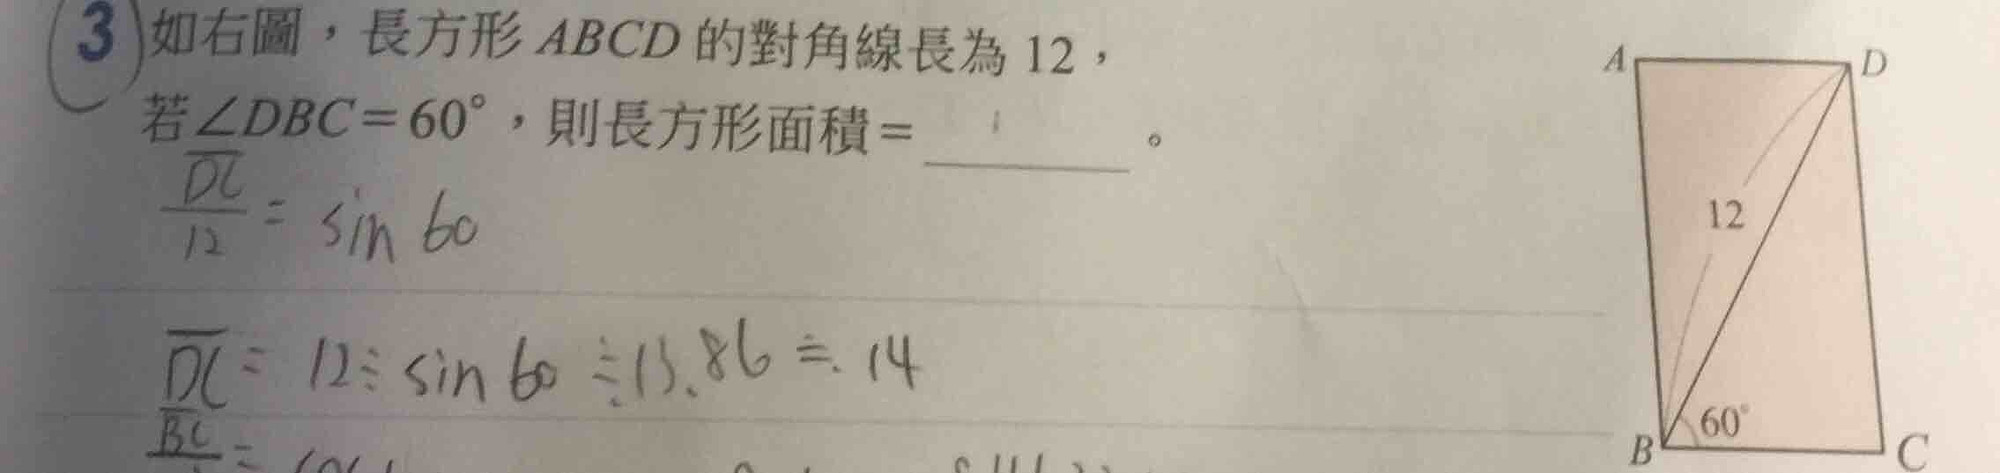 3 如右圖，長方形 ABCD 的對角線長為 12，
若∠DBC＝60°，則長方形面積＝ 。
DC/12 = sin 60
DC = 12÷sin 60 ≒ 13.86 ≒ 14
BC
A
D
12
60°
B
C